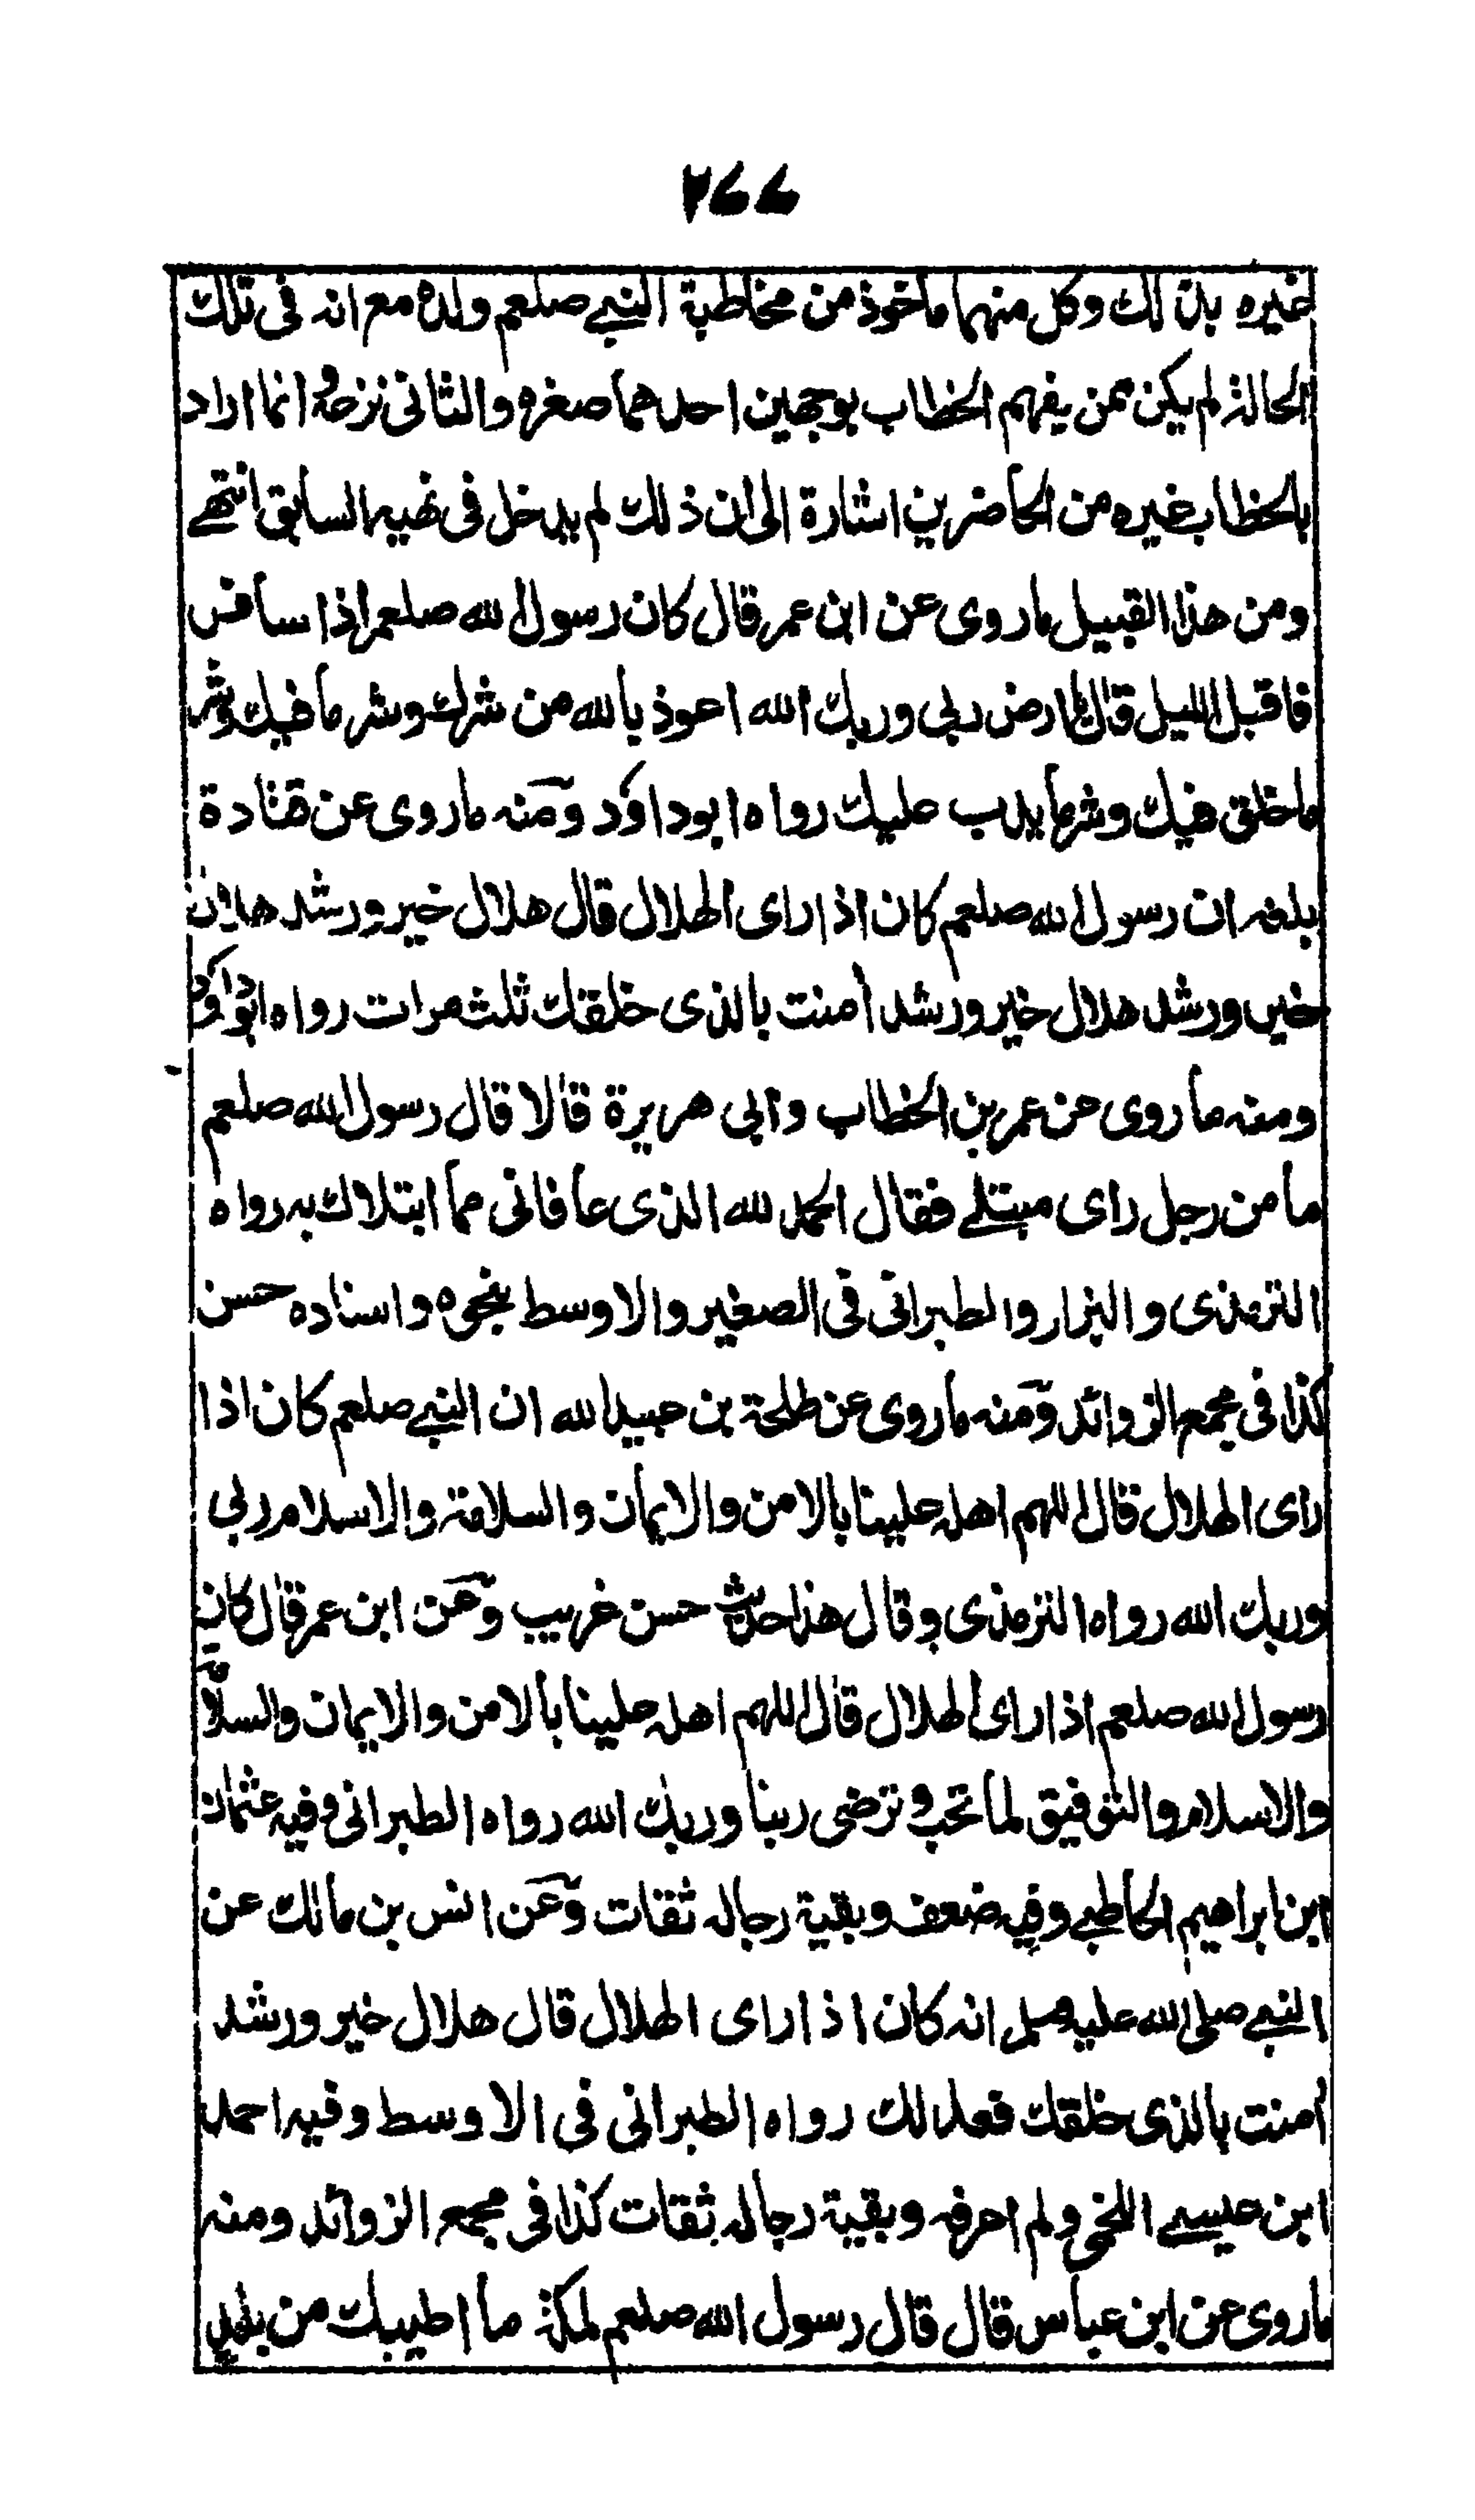 ٢٦٦
غيره بذلك وكل منهما ماخوذ من مخاطبة النبي صلعم ولده مع انه في تلك
الحالة لم يكن ممن يفهم الخطاب بوجهين احدهما صغره والثاني نزعه وانما اراد
بالخطاب غيره من الحاضرين اشارة الى ان ذلك لم يدخل في نهيه السابق انتهى
ومن هذا القبيل ما روى عن ابن عمر قال كان رسول الله صلعم اذا سافر
فاقبل الليل قال يا ارض ربي وربك الله اعوذ بالله من شرك وشر ما فيك وشر
ما خلق فيك وشر ما يدب عليك رواه ابو داؤد ومنه ما روى عن قتادة
بلغه ان رسول الله صلعم كان اذا راى الهلال قال هلال خير ورشد هلال
خير ورشد هلال خير ورشد امنت بالذى خلقك ثلث مرات رواه ابوداؤد
ومنه ما روى عن عمر بن الخطاب وابي هريرة قالا قال رسول الله صلعم
ما من رجل راى مبتلى فقال الحمد لله الذى عافانى مما ابتلاك به رواه
الترمذى والبزار والطبرانى فى الصغير والاوسط بنحوه واسناده حسن
كذا فى مجمع الزوائد ومنه ما روى عن طلحة بن عبيد الله ان النبي صلعم كان اذا
راى الهلال قال اللهم اهله علينا بالامن والايمان والسلامة والاسلام ربي
وربك الله رواه الترمذى وقال هذا حديث حسن غريب وعن ابن عمر قال كان
رسول الله صلعم اذا راى الهلال قال اللهم اهله علينا بالامن والايمان والسلامة
والاسلام والتوفيق لما تحب وترضى ربنا وربك الله رواه الطبرانى وفيه عثمان
ابن ابراهيم الحاطبي وفيه ضعف وبقية رجاله ثقات وعن انس بن مالك عن
النبي صلى الله عليه وسلم انه كان اذا راى الهلال قال هلال خير ورشد
امنت بالذى خلقك فعدلك رواه الطبرانى فى الاوسط وفيه احمد
ابن عيسى اللخمي ولم اعرفه وبقية رجاله ثقات كذا فى مجمع الزوائد ومنه
ما روى عن ابن عباس قال قال رسول الله صلعم لمكة ما اطيبك من بلد